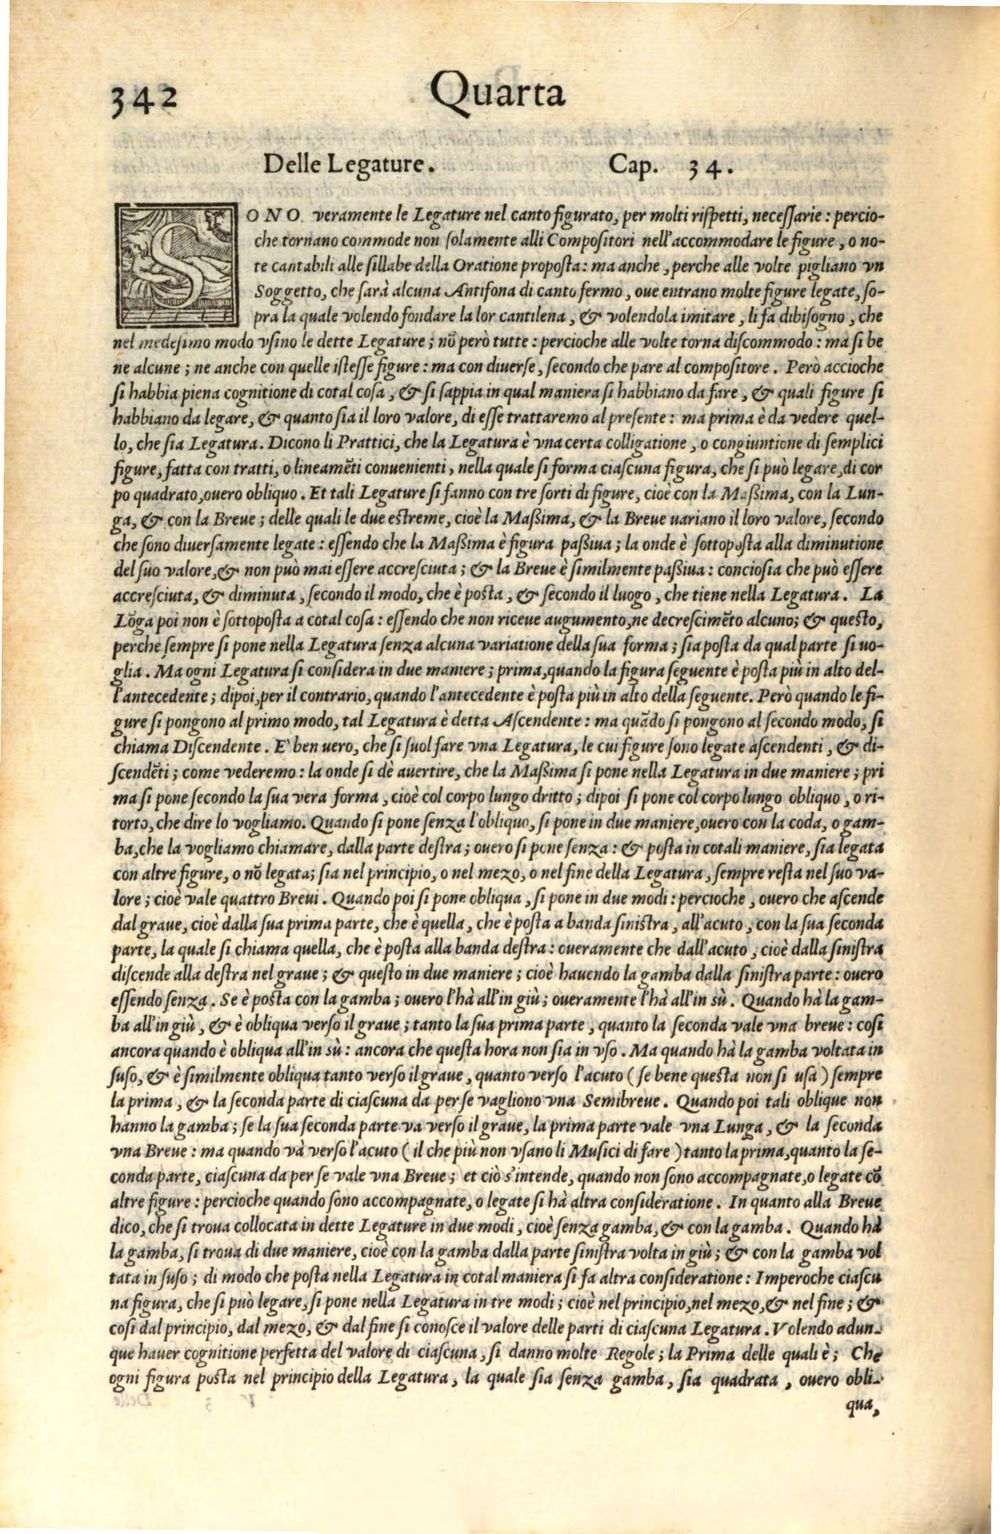 342
Quarta
Delle Legature. Cap. 34.
SONO veramente le Legature nel canto figurato, per molti riſpetti, neceſſarie: percio-
che tornano commode non ſolamente alli Compoſitori nell'accommodare le figure, o no-
te cantabili alle ſillabe della Oratione propoſta: ma anche, perche alle volte pigliano vn
Soggetto, che ſarà alcuna Antifona di canto fermo, oue entrano molte figure legate, ſo-
pra la quale volendo fondare la lor cantilena, & volendola imitare, li fa dibiſogno, che
nel medeſimo modo vſino le dette Legature; nõ però tutte: percioche alle volte torna diſcommodo: ma ſi be
ne alcune; ne anche con quelle iſteſſe figure: ma con diuerſe, ſecondo che pare al compoſitore. Però accioche
ſi habbia piena cognitione di cotal coſa, & ſi ſappia in qual maniera ſi habbiano da fare, & quali figure ſi
habbiano da legare, & quanto ſia il loro valore, di eſſe trattaremo al preſente: ma prima è da vedere quel-
lo, che ſia Legatura. Dicono li Prattici, che la Legatura è vna certa colligatione, o congiuntione di ſemplici
figure, fatta con tratti, o lineamẽti conuenienti, nella quale ſi forma ciaſcuna figura, che ſi può legare, di cor
po quadrato, ouero obliquo. Et tali Legature ſi fanno con tre ſorti di figure, cioè con la Maßima, con la Lun-
ga, & con la Breue; delle quali le due eſtreme, cioè la Maßima, & la Breue uariano il loro valore, ſecondo
che ſono diuerſamente legate: eſſendo che la Maßima è figura paßiua; la onde è ſottopoſta alla diminutione
del ſuo valore, & non può mai eſſere accreſciuta; & la Breue è ſimilmente paßiua: concioſia che può eſſere
accreſciuta, & diminuta, ſecondo il modo, che è poſta, & ſecondo il luogo, che tiene nella Legatura. La
Lõga poi non è ſottopoſta a cotal coſa: eſſendo che non riceue augumento, ne decreſcimẽto alcuno; & queſto,
perche ſempre ſi pone nella Legatura ſenza alcuna variatione della ſua forma; ſia poſta da qual parte ſi uo-
glia. Ma ogni Legatura ſi conſidera in due maniere; prima, quando la figura ſeguente è poſta più in alto del-
l'antecedente; dipoi, per il contrario, quando l'antecedente è poſta più in alto della ſeguente. Però quando le fi-
gure ſi pongono al primo modo, tal Legatura è detta Aſcendente: ma quãdo ſi pongono al ſecondo modo, ſi
chiama Diſcendente. E' ben uero, che ſi ſuol fare vna Legatura, le cui figure ſono legate aſcendenti, & di-
ſcendẽti; come vederemo: la onde ſi dè auertire, che la Maßima ſi pone nella Legatura in due maniere; pri
ma ſi pone ſecondo la ſua vera forma, cioè col corpo lungo dritto; dipoi ſi pone col corpo lungo obliquo, o ri-
torto, che dire lo vogliamo. Quando ſi pone ſenza l'obliquo, ſi pone in due maniere, ouero con la coda, o gam-
ba, che la vogliamo chiamare, dalla parte deſtra; ouero ſi pone ſenza: & poſta in cotali maniere, ſia legata
con altre figure, o nõ legata; ſia nel principio, o nel mezo, o nel fine della Legatura, ſempre reſta nel ſuo va-
lore; cioè vale quattro Breui. Quando poi ſi pone obliqua, ſi pone in due modi: percioche, ouero che aſcende
dal graue, cioè dalla ſua prima parte, che è quella, che è poſta a banda ſiniſtra, all'acuto, con la ſua ſeconda
parte, la quale ſi chiama quella, che è poſta alla banda deſtra: oueramente che dall'acuto, cioè dalla ſiniſtra
diſcende alla deſtra nel graue; & queſto in due maniere; cioè hauendo la gamba dalla ſiniſtra parte: ouero
eſſendo ſenza. Se è poſta con la gamba; ouero l'hà all'in giù; oueramente l'hà all'in sù. Quando hà la gam-
ba all'in giù, & è obliqua verſo il graue; tanto la ſua prima parte, quanto la ſeconda vale vna breue: coſi
ancora quando è obliqua all'in sù: ancora che queſta hora non ſia in vſo. Ma quando hà la gamba voltata in
ſuſo, & è ſimilmente obliqua tanto verſo il graue, quanto verſo l'acuto (ſe bene queſta non ſi uſa) ſempre
la prima, & la ſeconda parte di ciaſcuna da per ſe vagliono vna Semibreue. Quando poi tali oblique non
hanno la gamba; ſe la ſua ſeconda parte va verſo il graue, la prima parte vale vna Lunga, & la ſeconda
vna Breue: ma quando và verſo l'acuto (il che più non vſano li Muſici di fare) tanto la prima, quanto la ſe-
conda parte, ciaſcuna da per ſe vale vna Breue; et ciò s'intende, quando non ſono accompagnate, o legate cõ
altre figure: percioche quando ſono accompagnate, o legate ſi hà altra conſideratione. In quanto alla Breue
dico, che ſi troua collocata in dette Legature in due modi, cioè ſenza gamba, & con la gamba. Quando hà
la gamba, ſi troua di due maniere, cioè con la gamba dalla parte ſiniſtra volta in giù; & con la gamba vol
tata in ſuſo; di modo che poſta nella Legatura in cotal maniera ſi fa altra conſideratione: Imperoche ciaſcu
na figura, che ſi può legare, ſi pone nella Legatura in tre modi; cioè nel principio, nel mezo, & nel fine; &
coſi dal principio, dal mezo, & dal fine ſi conoſce il valore delle parti di ciaſcuna Legatura. Volendo adun-
que hauer cognitione perfetta del valore di ciaſcuna, ſi danno molte Regole; la Prima delle quali è; Che
ogni figura poſta nel principio della Legatura, la quale ſia ſenza gamba, ſia quadrata, ouero obli-
qua,